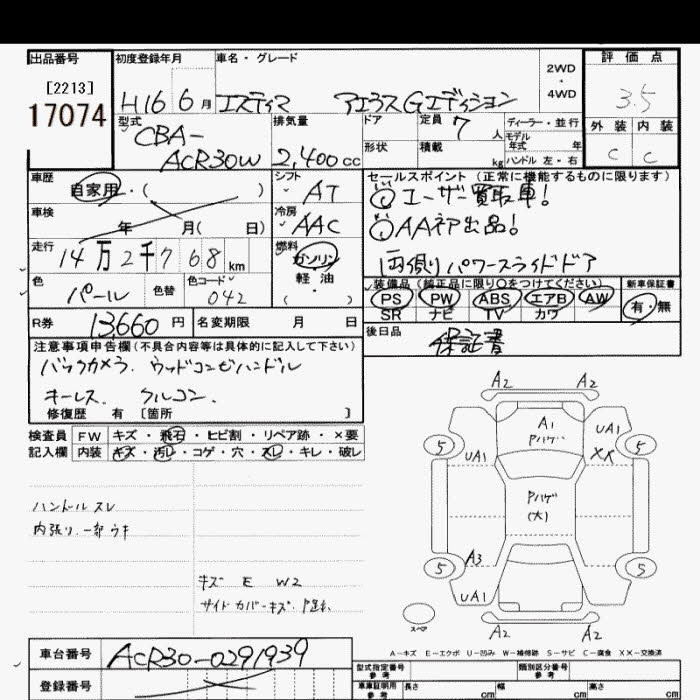 出品番号
[2213]
17074
初度登録年月
H16 6月
車名・グレード
エスティマ アエラスGエディション
2WD
・
4WD
評価点
3.5
外装 内装
C C
型式
CBA-
ACR30W
排気量
2,400cc
ドア
形状
定員 7人
積載 kg
ディーラー・並行
モデル
年式 年
ハンドル 左・右
車歴
自家用・( )
車検
年 月( 日)
走行
14万2千768km
色
パール
色替
色コード
042
シフト
AT
冷房
AAC
燃料
ガソリン
・
軽油
( )
セールスポイント (正常に機能するものに限ります)
ユーザー買取車!
AAネア出品!
両側パワースライドドア
装備品(純正品に限り○をつけてください)
PS PW ABS エアB AW
SR ナビ TV カワ
新車保証書
有・無
R券 13660円
名変期限 月 日
後日品
保証書
注意事項申告欄(不具合内容等は具体的に記入して下さい)
バックカメラ. ウッドコンビハンドル
キーレス. クルコン.
修復歴 有 [箇所 ]
検査員 FW キズ・飛石・ヒビ割・リペア跡・×要
記入欄 内装 キズ・汚レ・コゲ・穴・スレ・キレ・破レ
ハンドルスレ
内張り.一部ウキ
キズ E W2
サイドカバーキズ.
A2 A2
A1
Pハゲ
UA1
XX
5 5
UA1
Pハゲ
(大)
A3
5 5
UA1
A2 A2
スペア
A-キズ E-エクボ U-凹み W-補修跡 S-サビ C-腐食 XX-交換済
車台番号 ACR30-0291939
登録番号
型式指定番号
参考
類別区分番号
参考
車庫証明用
参考
長さ cm 幅 cm 高さ cm